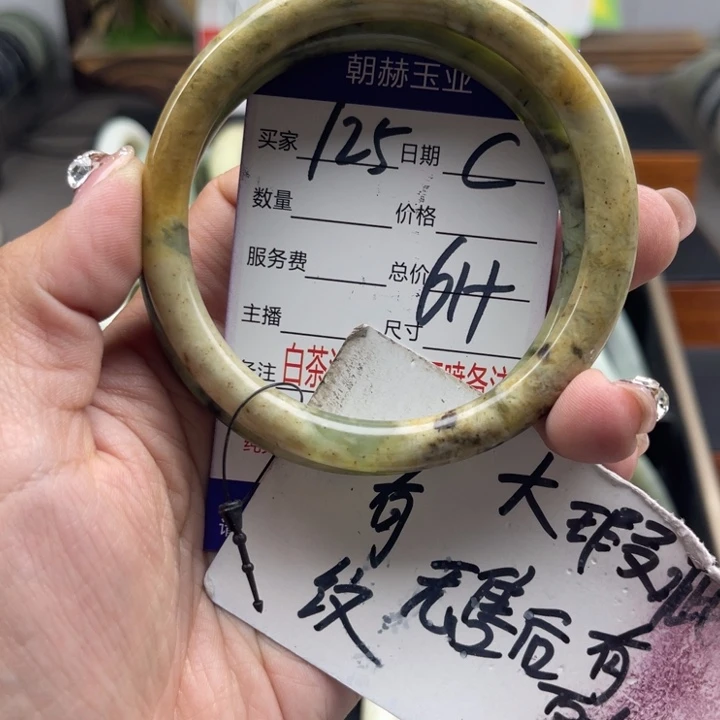 朝赫玉业
买家 125 日期 C
数量 价格
服务费 总价 6H
主播 尺寸
备注 白茶
有 大瑕
纹 无售后有